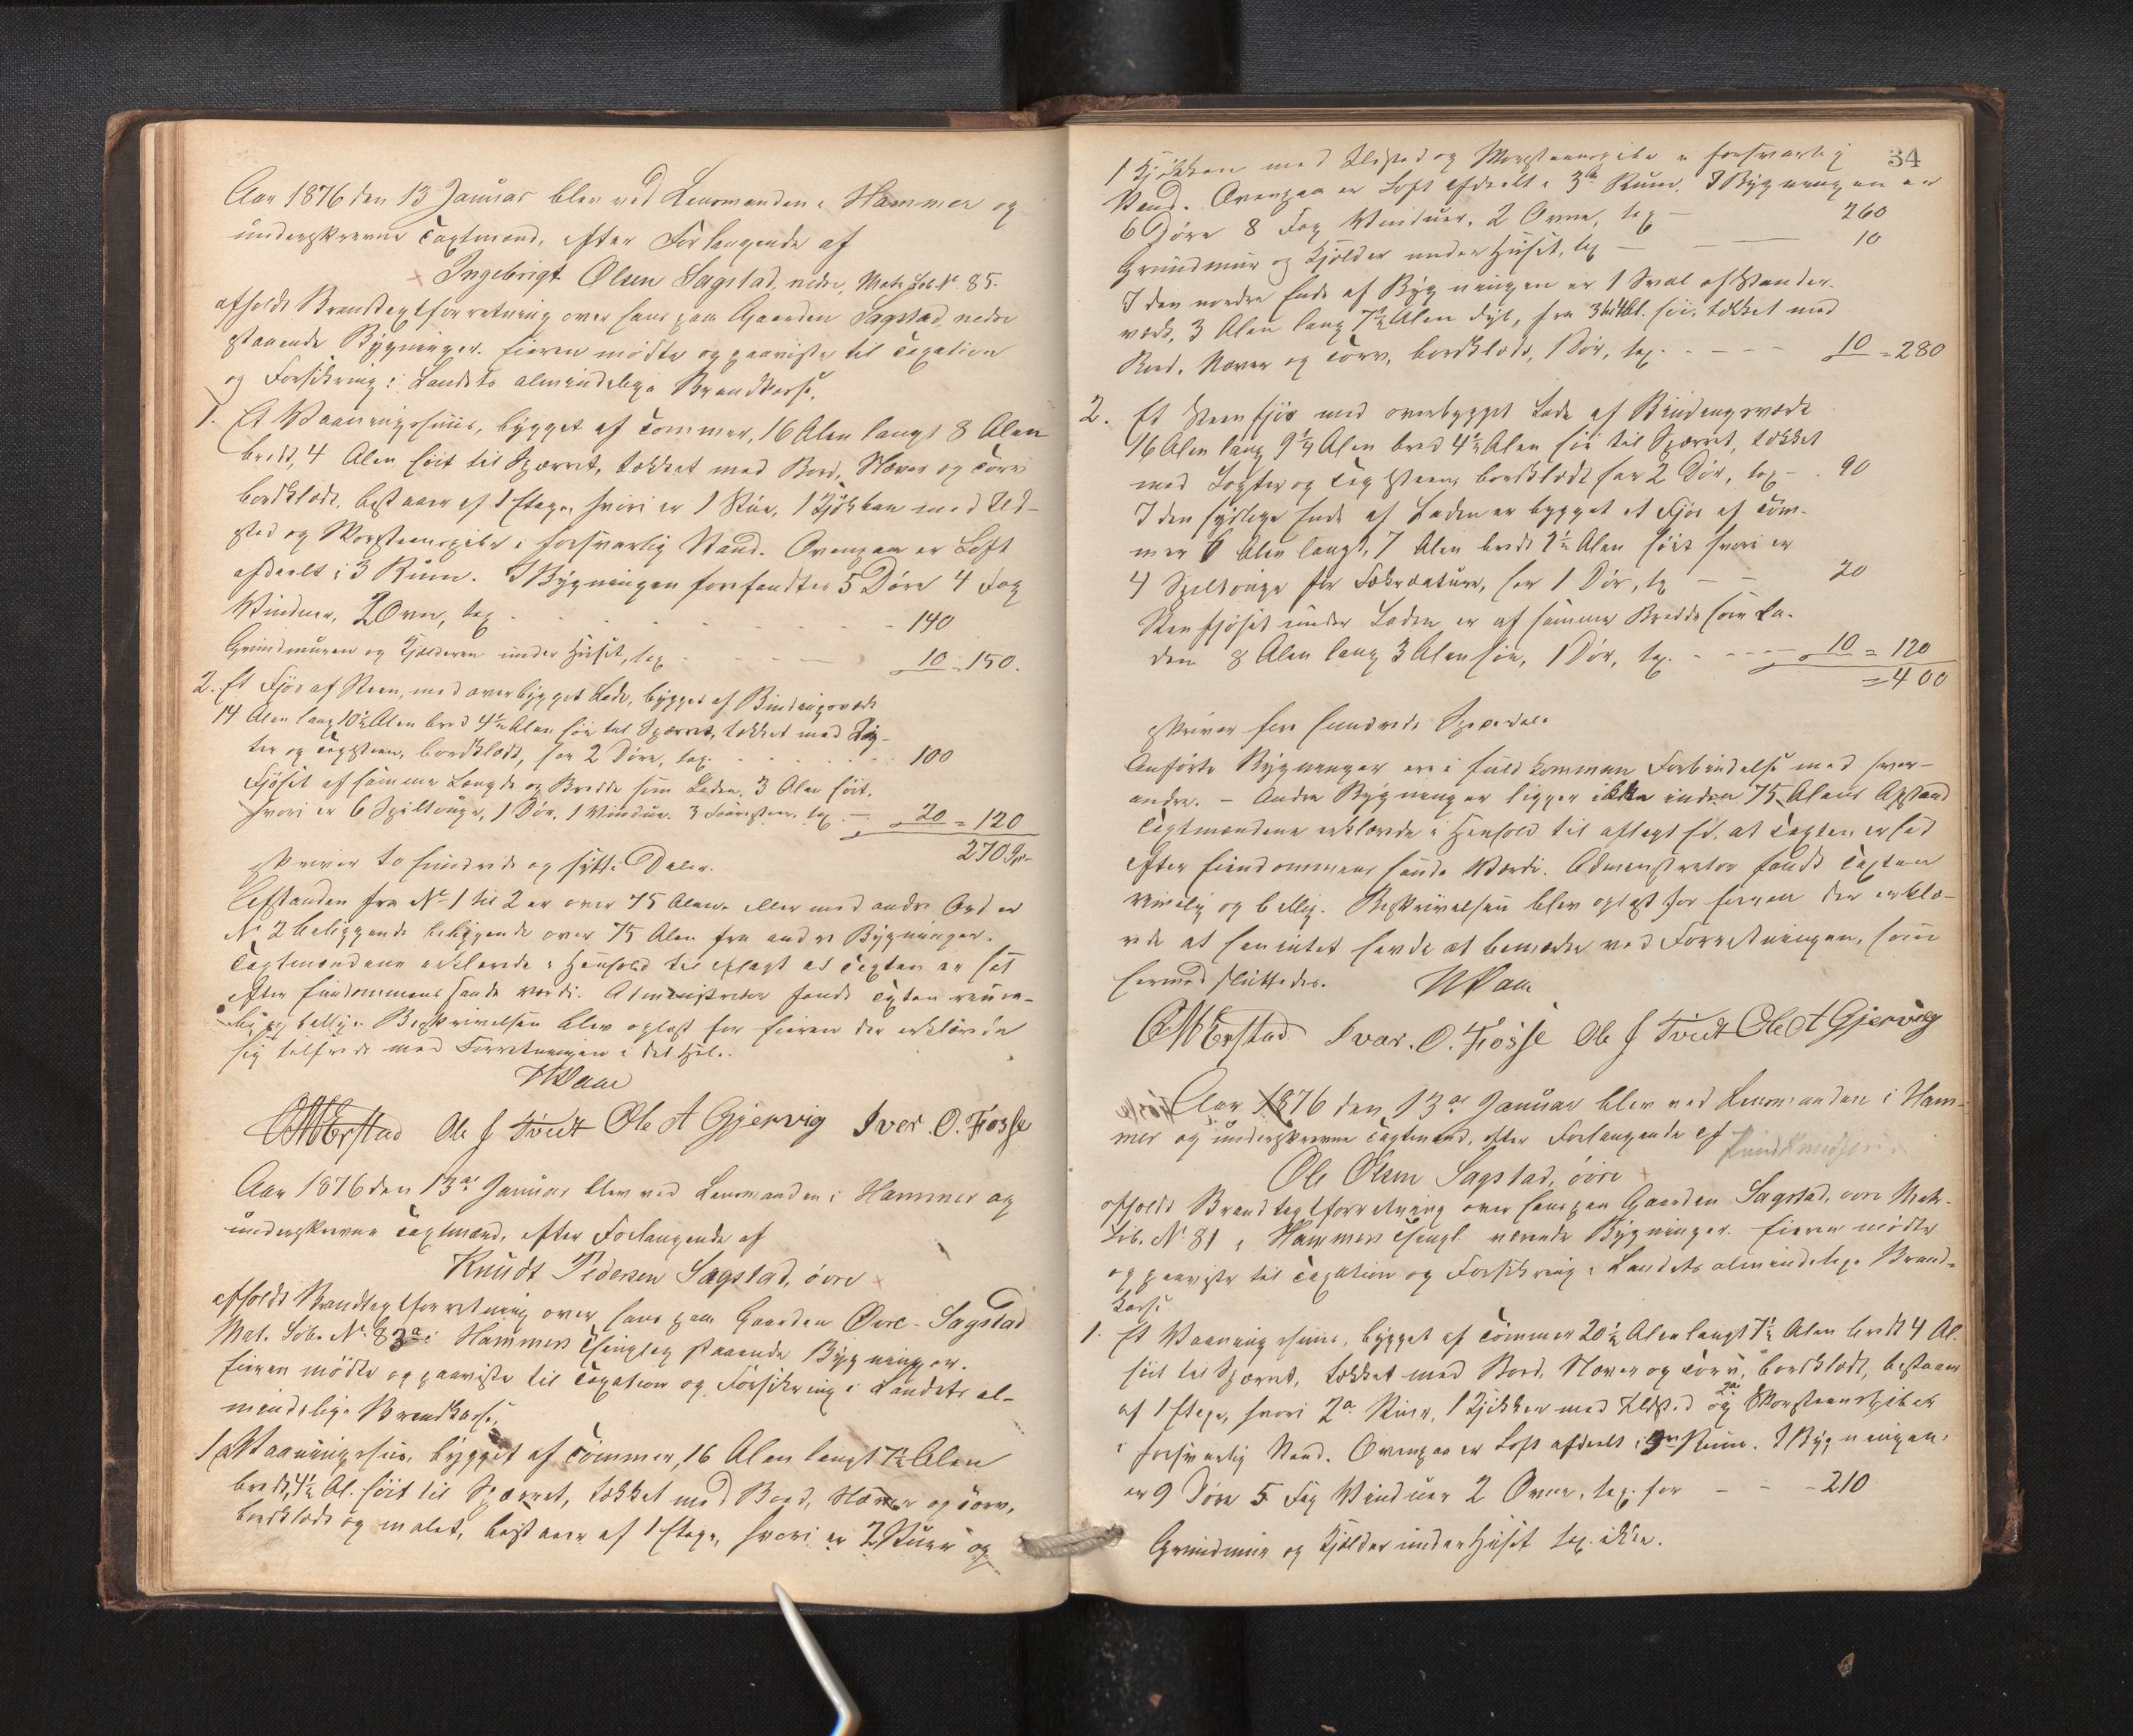 Aar 1876 den 13 Januar blev ved Lensmanden i Hammer og
underskrevne Taxtmænd, efter Forlangende af
Ingebrigt Olsen Sagstad, nedre, Matr. Løb. No 85.
afholdt Brandtaxtforretning over hans paa Gaarden Sagstad nedre
staaende Bygninger. Eieren mødte og paaviste til Taxation
og Forsikring i Landets almindelige Brandkasse.
1. Et Vaaningshuus, bygget af Tømmer, 16 Alen langt 8 Alen
bredt, 4 Alen høit til Sperret, tækket med Bord, Næver og Torv
bordklædt, bestaaer af 1 Etage, hvori er 1 Stue, 1 Kjøkken med Ild-
sted og Skorsteenspibe i forsvarlig Stand. Ovenpaa er Loft
afdeelt i 3 Rum. I Bygningen forefandtes 5 Døre 4 Fag
Vinduer, 2 Ovne, tax. - - - - 140
Grundmuren og Kjælderen under Huset, tax - - - 10 = 150.
2. Et Fjøs af Steen, med overbygget Lade, bygget af Bindingsværk
14 Alen lang 10½ Alen bred 4½ Alen høi til Sperret, tækket med Læg-
ter og Tagsteen, bordklædt, har 2 Døre, tax. - - - 100
Fjøset af samme Længde og Bredde som Laden, 3 Alen høit.
hvori er 6 Spiltouge, 1 Dør, 1 Vindue. tax. - 20 = 120
270 Sp.
skriver to hundrede og sytti Daler.
Afstanden fra No 1 til 2 er over 75 Alen. eller med andre Ord er
No 2 beliggende beliggende over 75 Alen fra andre Bygninger.
Taxtmændene erklærede i Henhold til aflagt Taxten er sat
efter Eiendommens sande værdi. Administrator fandt Taxten rime-
lig og billig. Beskrivelsen blev oplæst for Eieren der erklærede
sig tilfreds med Forretningen i det Hele.
Ole J Tvedt Ole A Gjervig Iver. O. Fosse
Aar 1876 den 13de Januar blev ved Lensmanden i Hammer og
underskrevne Taxtmænd, efter Forlangende af
Knudt Pedersen Sagstad, övre
afholdt Brandtaxtforretning over hans paa Gaarden Övre-Sagstad
Mat. Løb. No 83a i Hammers Thinglag staaende Bygninger.
Eieren mødte og paaviste til Taxation og Forsikring i Landets al-
mindelige Brandkasse.
1. Et Vaaningshus, bygget af Tømmer, 16 Alen langt 7½ Alen
bredt, 4½ Al. høit til Sperret, tækket med Bord, Næver og Torv,
bordklædt og malet, bestaaer af 1 Etage, hvori er 2 Stuer og
34
1 Kjøkken med Ildsted og Skorsteenspibe i forsvarlig
Stand. Ovenpaa er Loft afdeelt i 3de Rum. I Bygningen er
6 Döre 8 Fag Vinduer, 2 Ovne, tax - 260
Grundmur og Kjelder under Huset, tax - - - 10
I den nordre Ende af Bygningen er 1 Sval af Stander-
værk, 3 Alen lang 7½ Alen dyb, høi, tækket med
Bord, Næver og Torv, bordklædt, 1 Dør, tax. - - - - 10 = 280
2. Et Steenfjøs med overbygget Lade af Bindingsværk
16 Alen lang 9¼ Alen bred 4½ Alen høi til Sperret, tækket
med Lægter og Tagsteen, bordklædt har 2 Dör, tax - - 90
I den sydlige Ende af Laden er bygget et Fjøs af Tøm-
mer 6 Alen langt, 7 Alen bredt Alen høit hvori er
4 Spiltouge for Fækreature, har 1 Dör, tax - - 20
Steenfjøset under Laden er af samme Bredde som La-
den 8 Alen lang 3 Alen høi, 1 Dør, tax. - - - - 10 = 120
= 400
skriver fire hundrede Spesidaler
Anførte Bygninger ere i fuldkommen Forbindelse med hver-
andre. - Andre Bygninger ligger ikke inden 75 Alens Afstand
Taxtmændene erklærede i Henhold til aflagt Ed, at Taxten er sat
efter Eiendommens sande Værdi. Administrator fandt Taxten
rimelig og billig. Beskrivelsen blev oplæst for Eieren der erklæ-
rede at han intet havde at bemærke ved Forretningen, som
hermed sluttedes.
Ivar. O. Fosse Ole J Tvedt Ole A Gjervig
Aar 1876 den 13de Januar blev ved Lensmanden i Ham-
mer og underskrevne Taxtmænd, efter Forlangende af
Ole Olsen Sagstad, övre
afholdt Brandtaxtforretning over hans paa Gaarden Sagstad, övre Matr.
Löb. No 81 i Hammers Thingl. værende Bygninger. Eieren mødte
og paaviste til Taxation og Forsikring i Landets almindelige Brand-
kasse
1. Et Vaaningshuus, bygget af Tømmer 20½ Alen langt 7½ Alen bredt 4 Al.
høit til Sperret, tækket med Bord, Næver og Torv, bordklædt, bestaaer
af 1 Etage, hvori 2de Stuer, 1 Kjøkken med Ildsted og 2de Skorsteenspiber
i forsvarlig Stand. Ovenpaa er Loft afdeelt i Rum. I Bygningen
er 9 Döre 5 Fag Vinduer 2 Ovne, tax. for - - - 210
Grundmur og Kjelder under Huset tax. ikke.